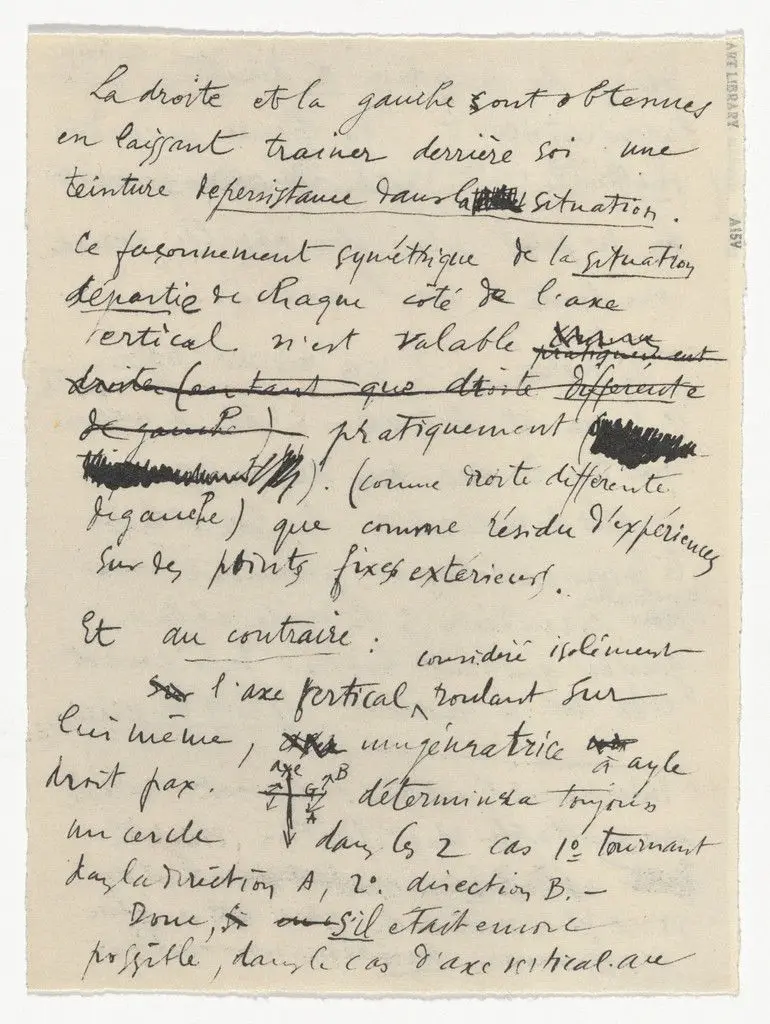 La droite et la gauche sont obtenues
en laissant trainer derrière soi une
teinture de persistance dans la situation.
Ce façonnement symétrique de la situation
départie de chaque côté de l'axe
vertical n'est valable pratiquement
droite (en tant que droite différente
de gauche) pratiquement (
). (comme droite différente
de gauche) que comme résidu d'expériences
sur des points fixes extérieurs.
Et au contraire :
considéré isolément
sur l'axe vertical, roulant sur
lui même, une génératrice à angle
droit par. axe B déterminera toujours
G A
un cercle dans les 2 cas 1º tournant
dans la direction A, 2º. direction B. –
Donc, si s'il était encore
possible, dans le cas d'axe vertical au
ART LIBRARY
A15V